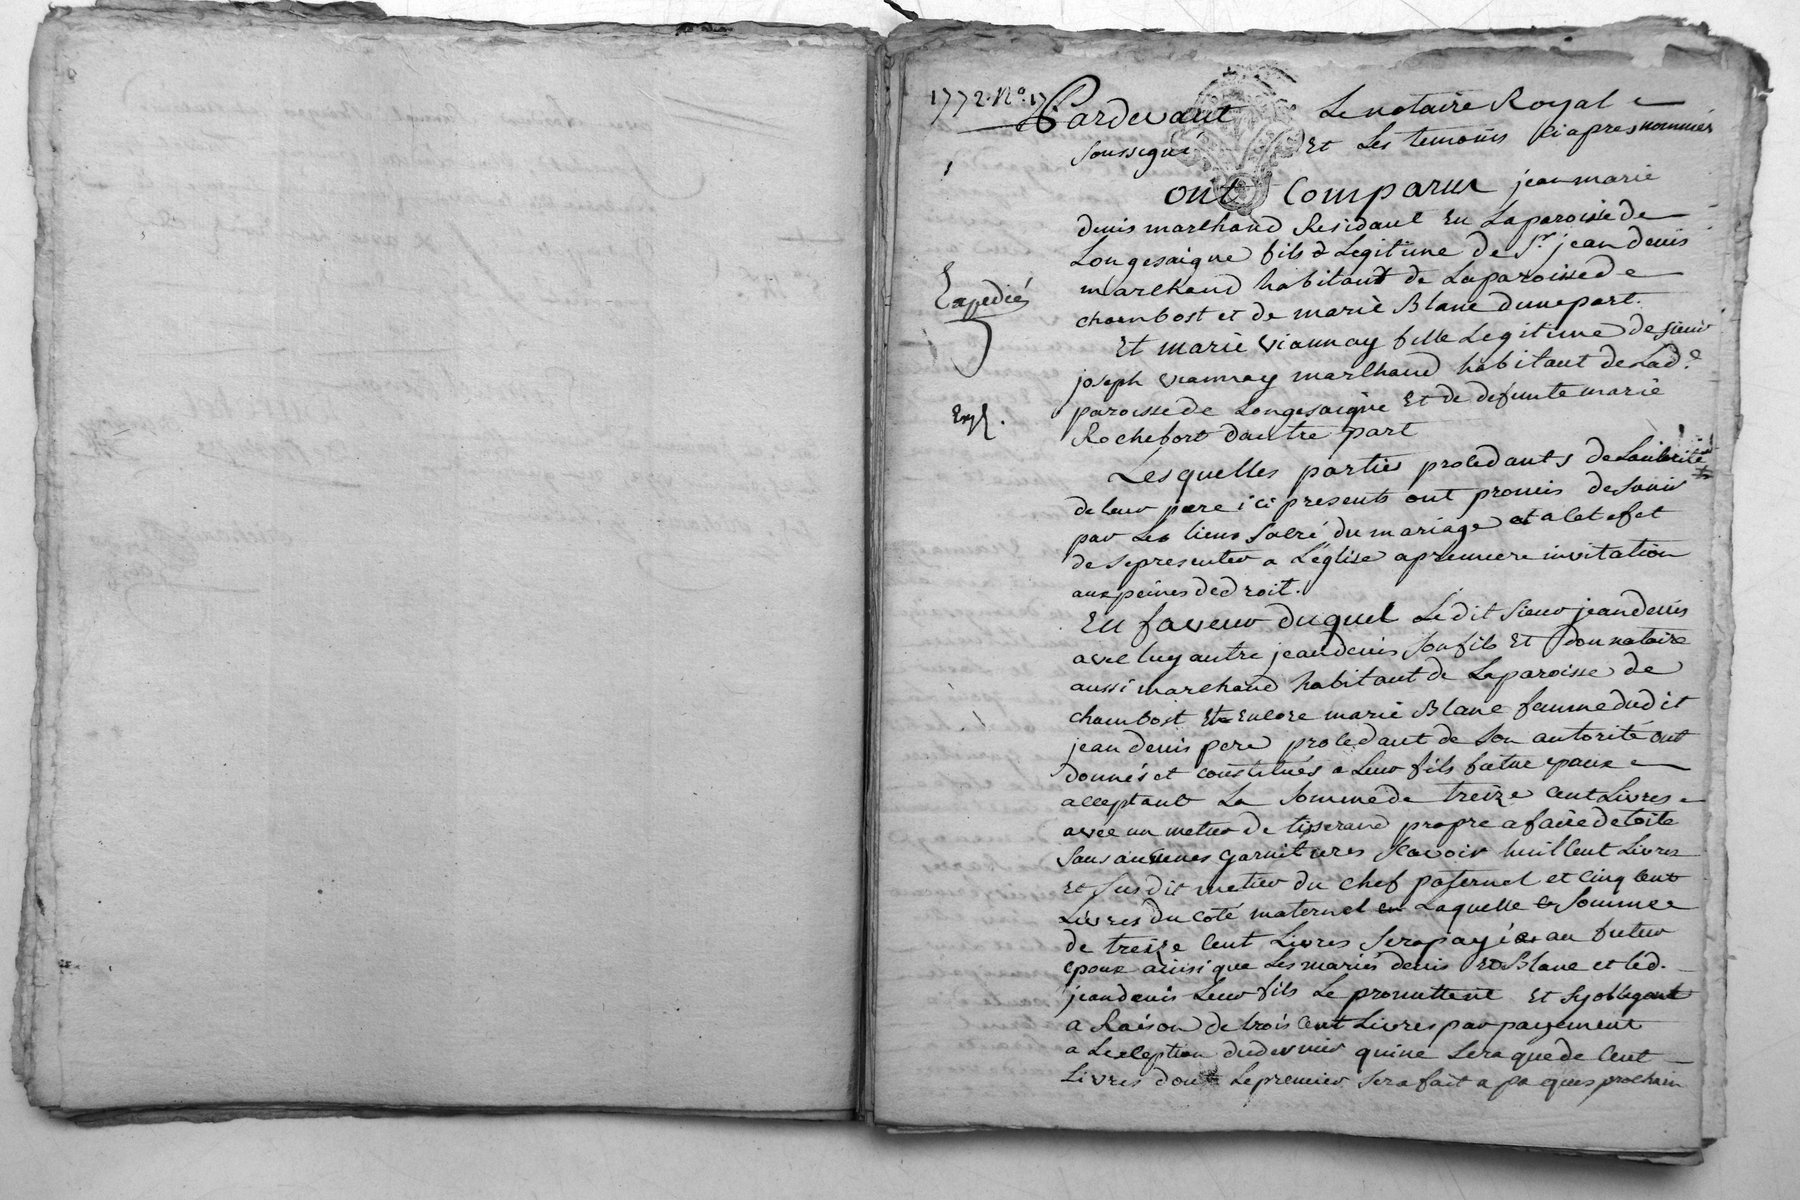 1772. No. 17
Pardevant Le notaire Royal
soussigné Et Les temoins ci apres nommés
ont Comparu jean marie
denis marchand Residant En La paroisse de
Longesaigne fils Legitime de Sr. jean denis
marchand habitant de La paroisse de
chambost et de marie Blanc dune part.
Et marie viannay fille Legitime de sieur
joseph viannay marchand habitant de Lad.e
paroisse de Longesaigne Et de defunte marie
Rochefort dautre part
Expedié
Lesquelles parties procedants de Lautorité
de leur pere ici presents ont promis de sunir
par Les liens sacré du mariage et a cet efet
de se presenter a L'église a premiere invitation
aux peines de droit.
En faveur duquel Le dit sieur jean denis
avec luy autre jean denis son fils Et donnataire
aussi marchand habitant de La paroisse de
chambost Et Encore marie Blanc femme dudit
jean denis pere procedant de son autorité ont
donnés et constitués a Leur fils futur epoux
acceptant La somme de treize cent Livres
avec un metier de tisserand propre a faire de toile
sans aucunes garnitures scavoir huit cent Livres
et susdit metier du chef paternel et cinq cent
Livres du coté maternel Laquelle somme
de treize cent Livres sera payée au futur
epoux ainsi que Les mariés denis et Blanc et led.
jean denis Leur fils Le promettent Et sy obligent
a Raison de trois cent Livres par payement
a Lexception du dernier qui ne sera que de cent
Livres dont Le premier sera fait a paques prochain